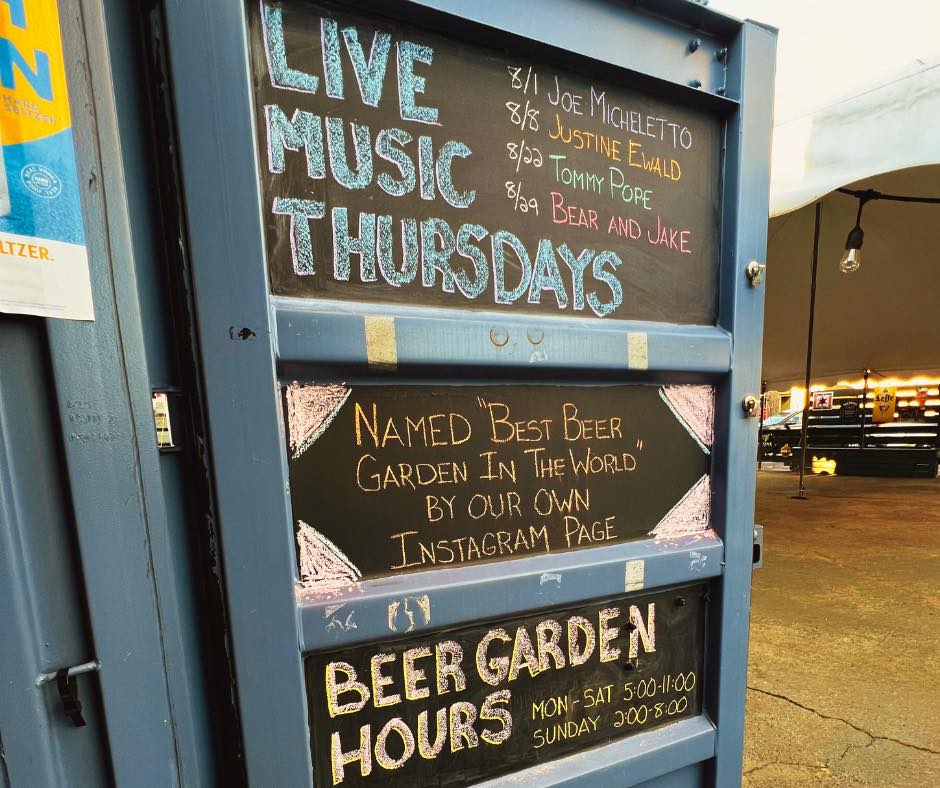 N
HARD
SELTZER
LTZER.
LIVE
MUSIC
THURSDAYS
8/1 JOE MICHELETTO
8/8 JUSTINE EWALD
8/22 TOMMY POPE
8/29 BEAR AND JAKE
NAMED "BEST BEER
GARDEN IN THE WORLD"
BY OUR OWN
INSTAGRAM PAGE
BEER GARDEN
HOURS
MON-SAT 5:00-11:00
SUNDAY 2:00-8:00
Leffe